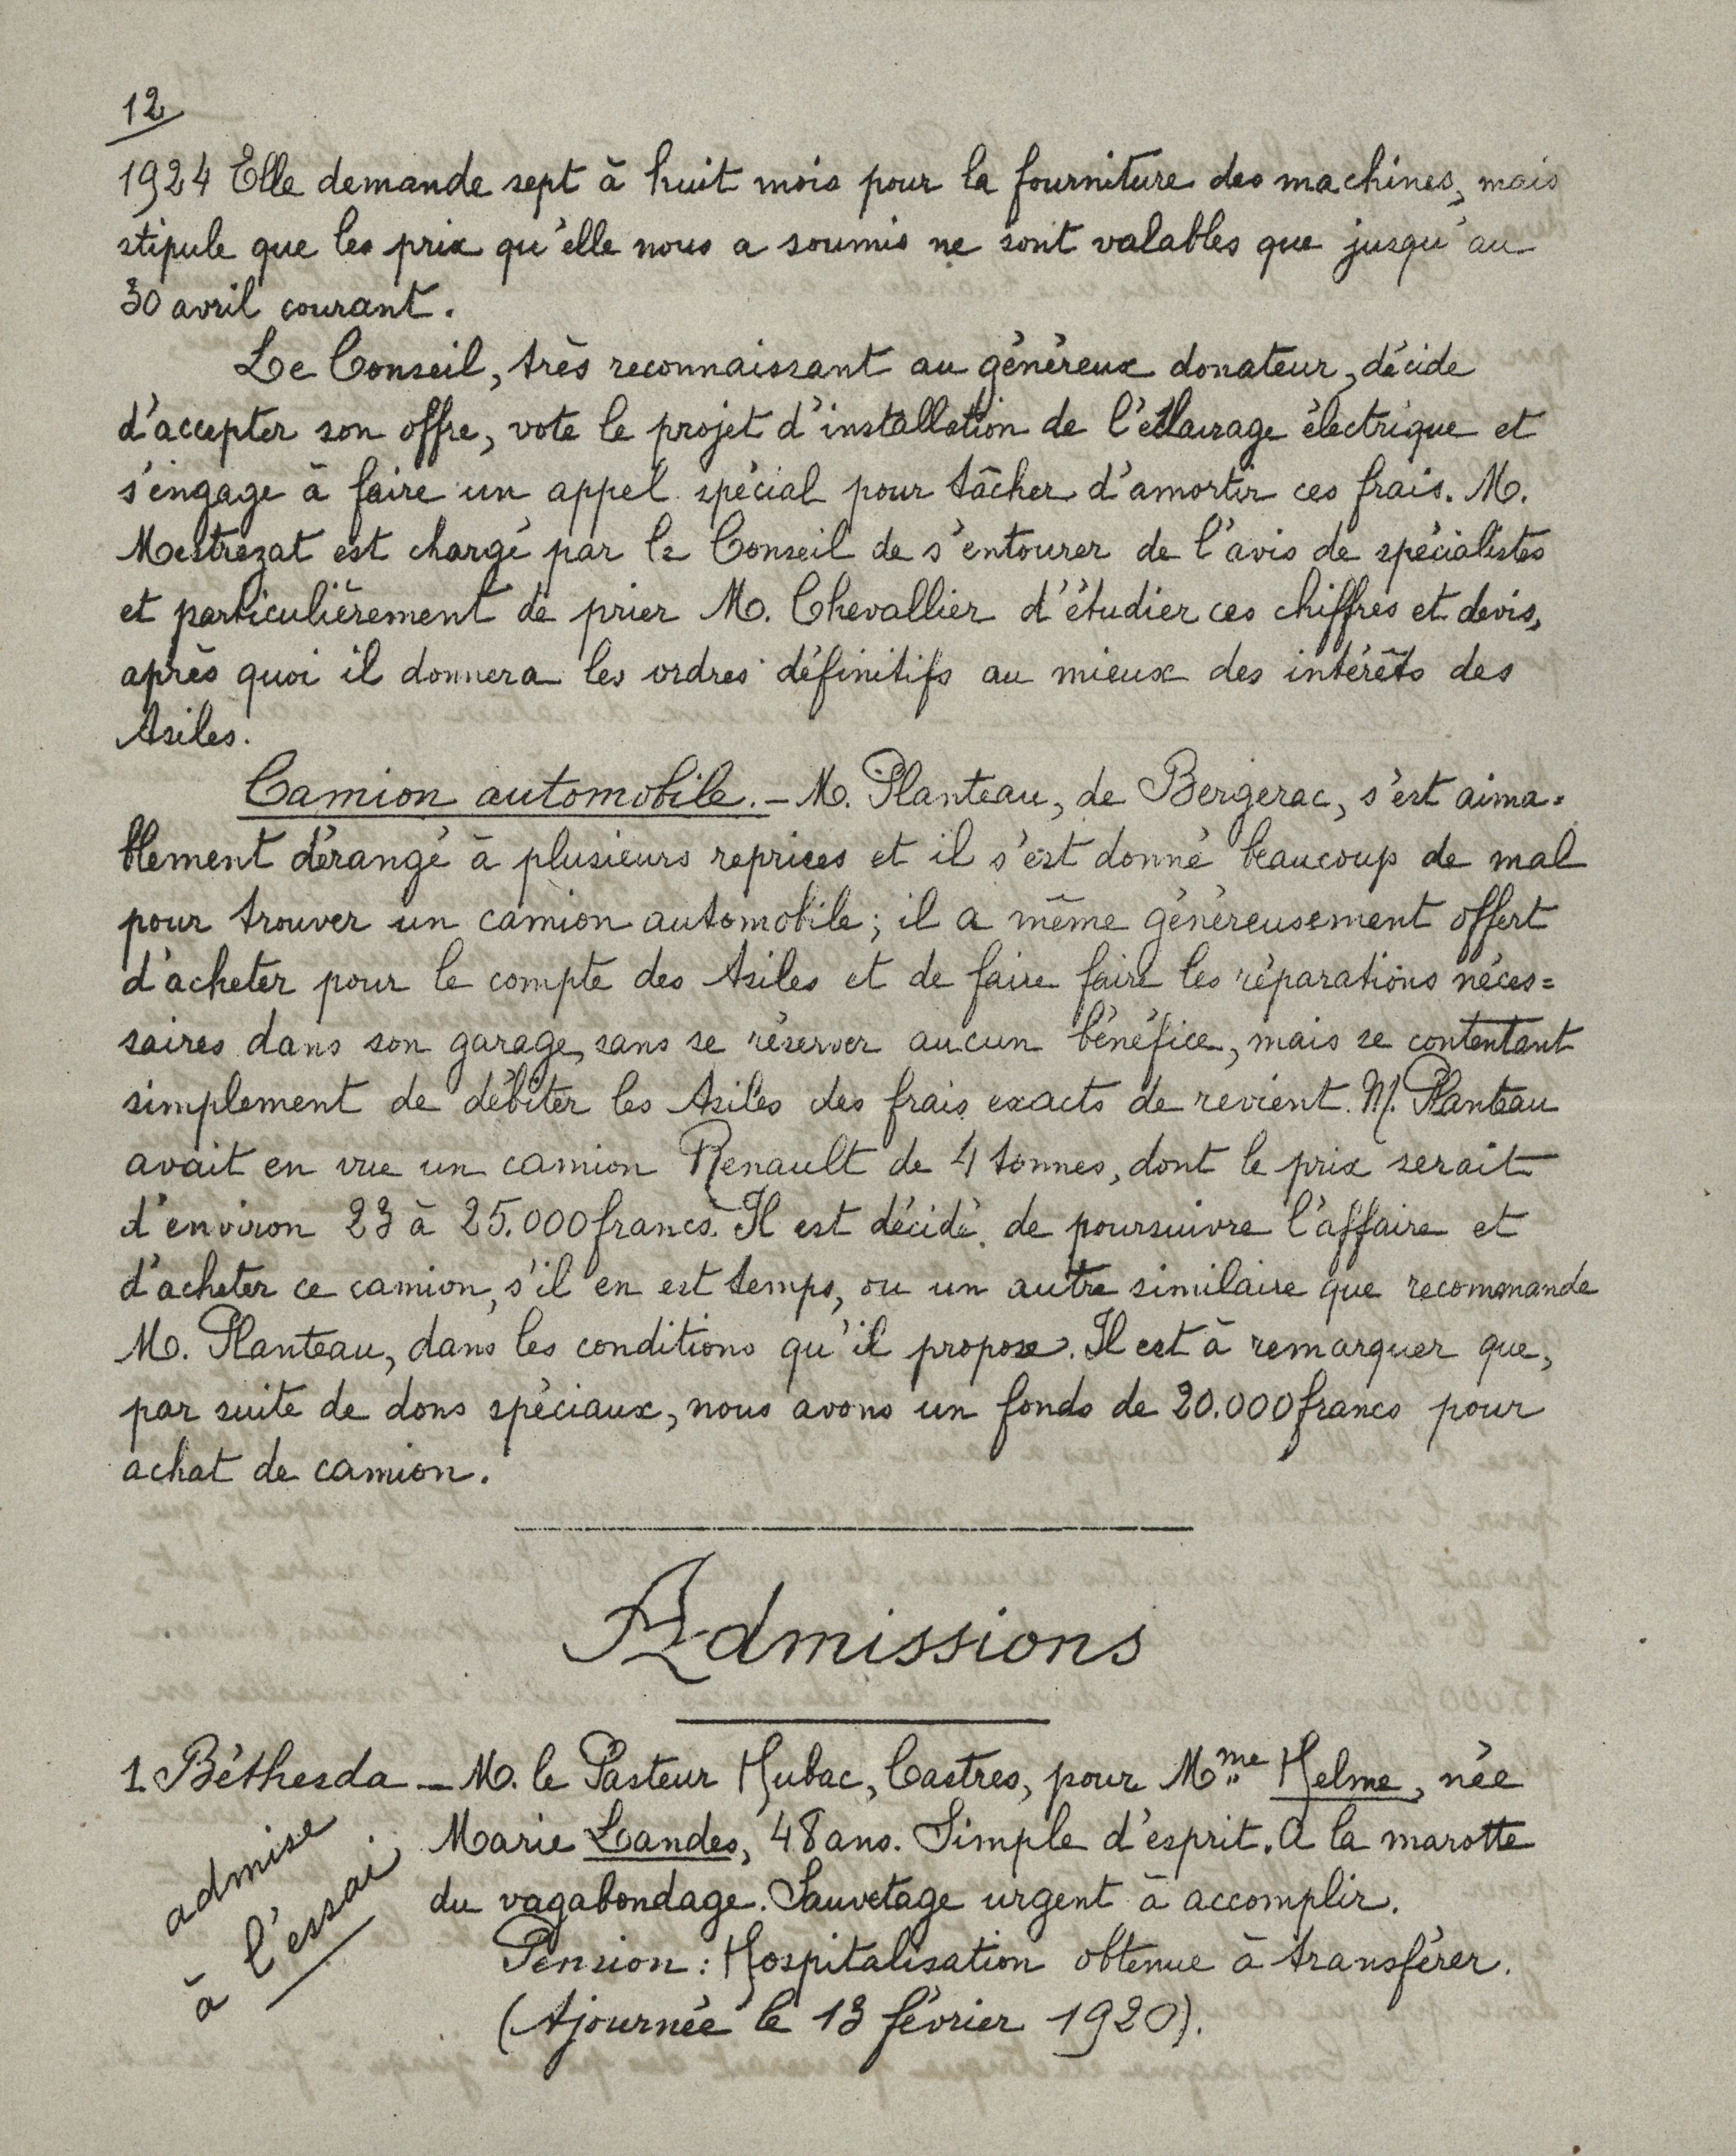 12
1924 Elle demande sept à huit mois pour la fourniture des machines, mais
stipule que les prix qu'elle nous a soumis ne sont valables que jusqu'au
30 avril courant.
Le Conseil, très reconnaissant au généreux donateur, décide
d'accepter son offre, vote le projet d'installation de l'éclairage électrique et
s'engage à faire un appel spécial pour tâcher d'amortir ces frais. M.
Mestrezat est chargé par le Conseil de s'entourer de l'avis de spécialistes
et particulièrement de prier M. Chevallier d'étudier ces chiffres et devis,
après quoi il donnera les ordres définitifs au mieux des intérêts des
Asiles.
Camion automobile. - M. Planteau, de Bergerac, s'est aima=
blement dérangé à plusieurs reprises et il s'est donné beaucoup de mal
pour trouver un camion automobile; il a même généreusement offert
d'acheter pour le compte des Asiles et de faire faire les réparations néces=
saires dans son garage, sans se réserver aucun bénéfice, mais se contentant
simplement de débiter les Asiles des frais exacts de revient. M. Planteau
avait en vue un camion Renault de 4 tonnes, dont le prix serait
d'environ 23 à 25.000 francs. Il est décidé de poursuivre l'affaire et
d'acheter ce camion, s'il en est temps, ou un autre similaire que recommande
M. Planteau, dans les conditions qu'il propose. Il est à remarquer que,
par suite de dons spéciaux, nous avons un fonds de 20.000 francs pour
achat de camion.
Admissions
1. Béthesda - M. le Pasteur Hubac, Castres, pour Mme Helme, née
Marie Landes, 48 ans. Simple d'esprit. A la marotte
du vagabondage. Sauvetage urgent à accomplir.
Pension : Hospitalisation obtenue à transférer.
(Ajournée le 13 février 1920).
admise
à l'essai